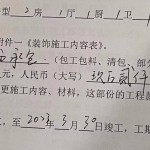 型 2 房 1 厅 1 厨 1 卫
附件一《装饰施工内容表》。
承包 （包工包料、清包、部分
元，人民币（大写）玖仟贰佰
更施工内容、材料，这部份的工程款
，至 2023 年 3 月 30 日竣工，工期